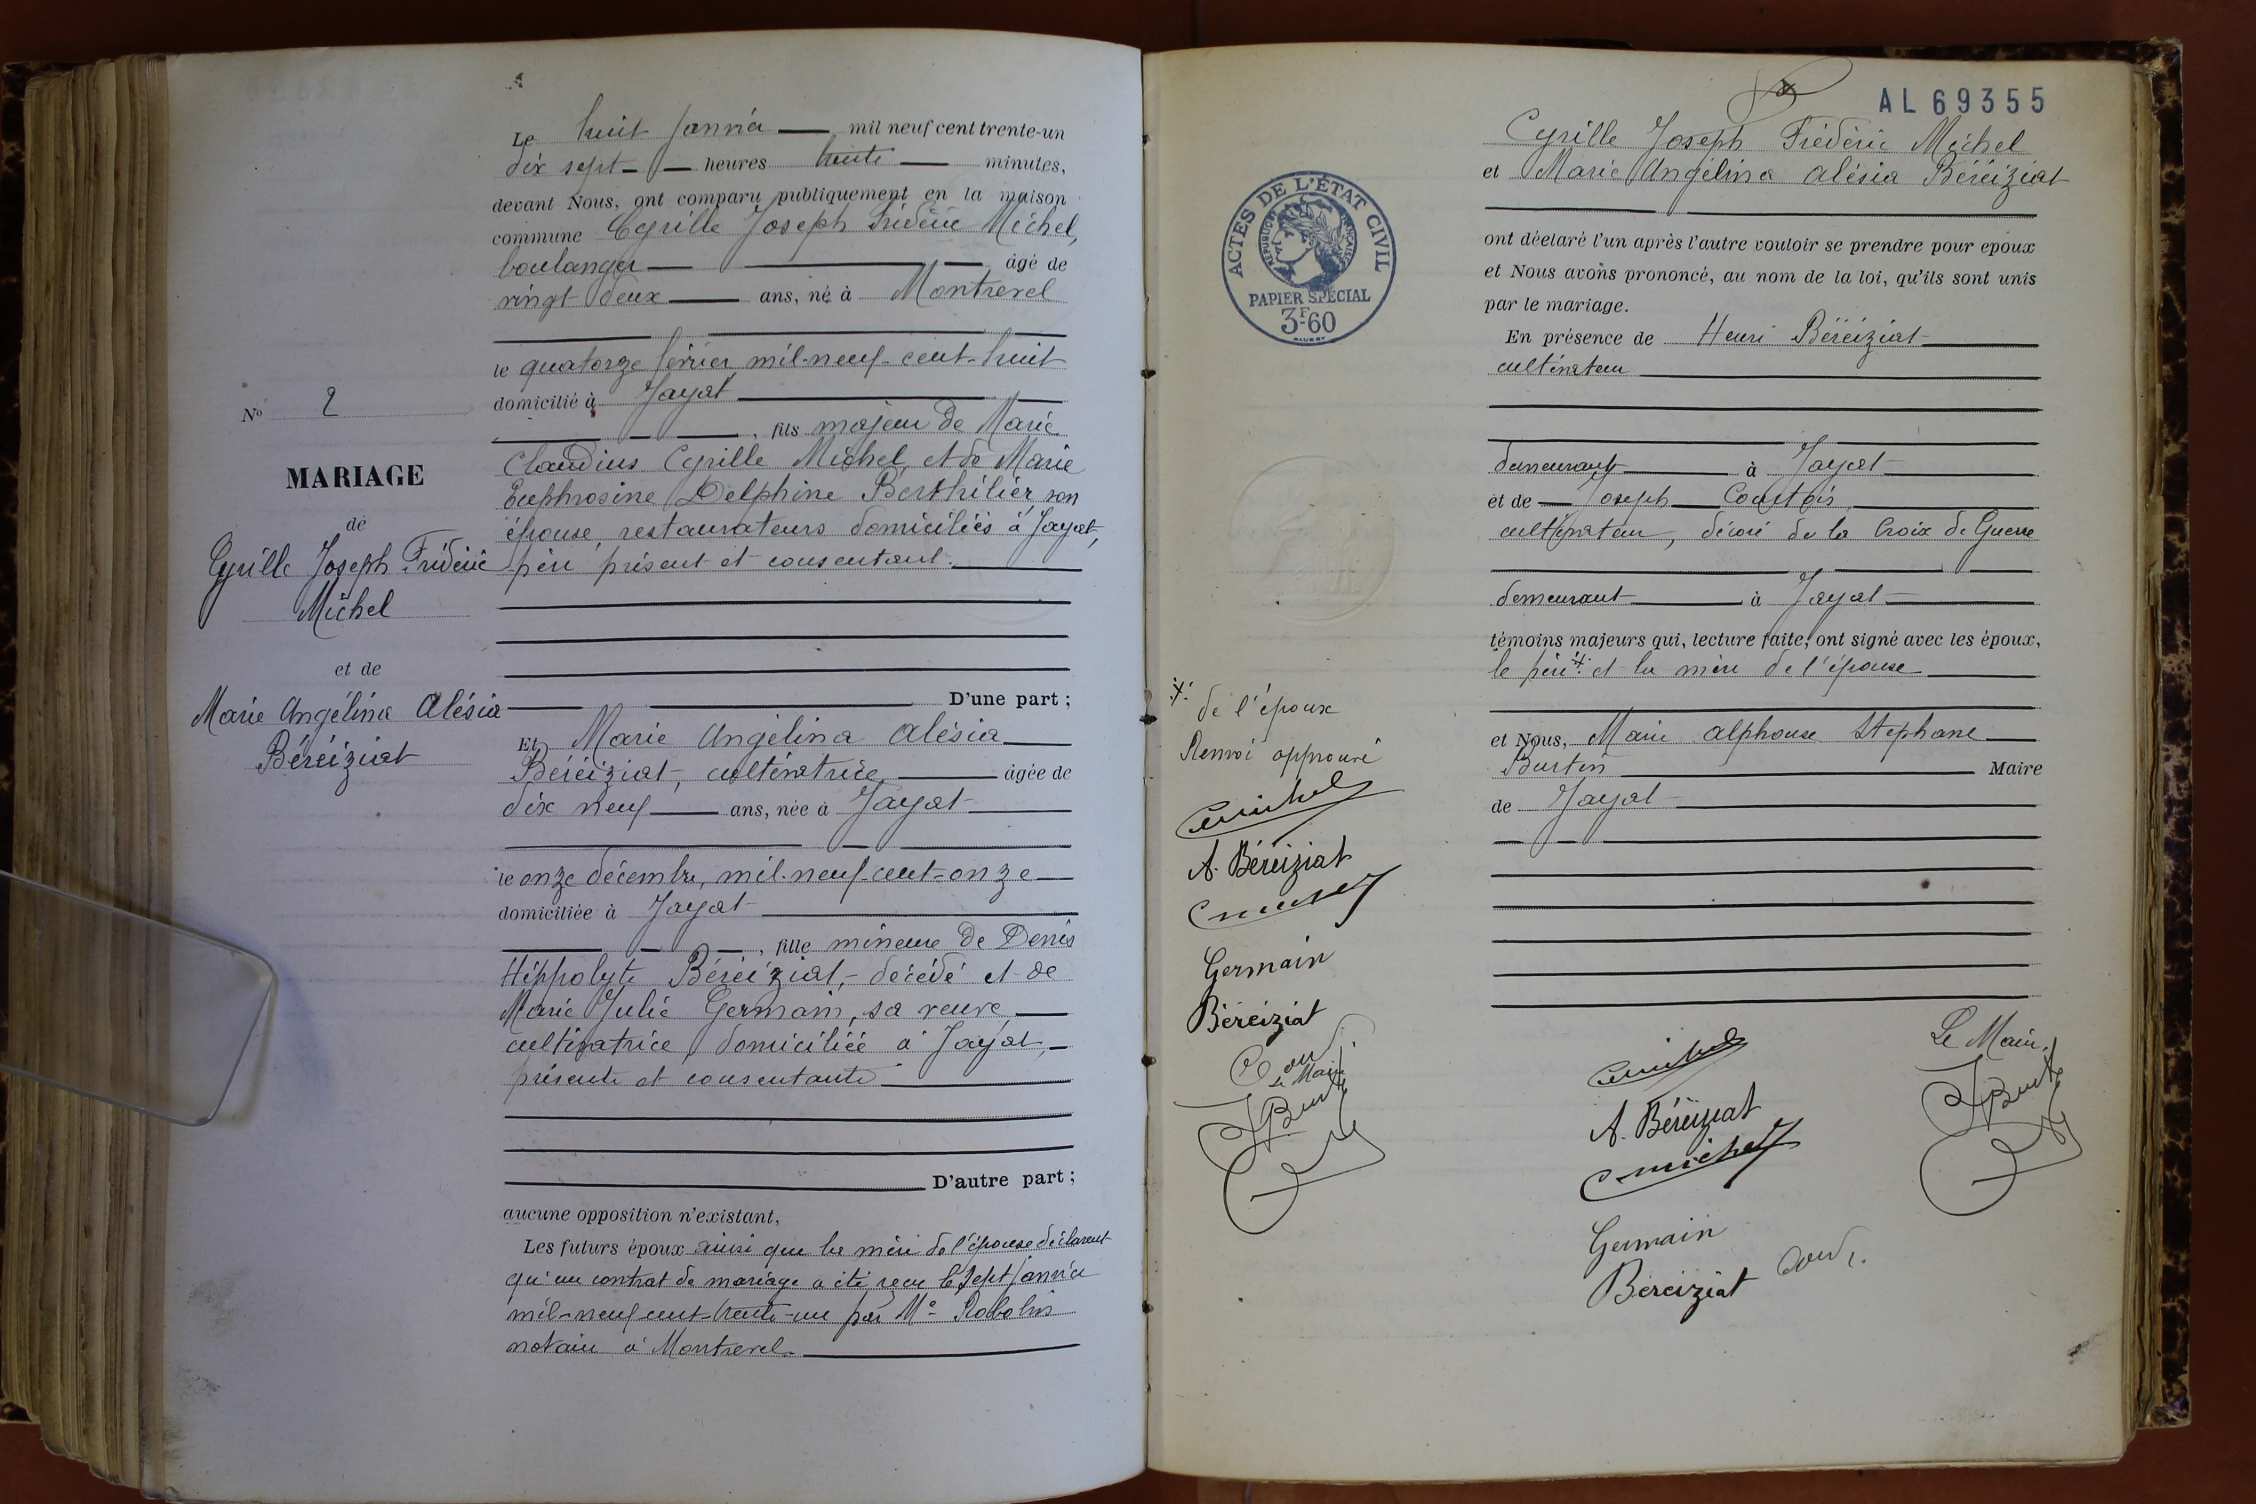 Le huit Janvier mil neuf cent trente-un
dix sept heures trente minutes,
devant Nous, ont comparu publiquement en la maison
commune Cyrille Joseph Frédéric Michel,
boulanger âgé de
vingt deux ans, né à Montrevel
le quatorze février mil-neuf-cent-huit
domicilié à Jayat
, fils majeur de Marie
Claudius Cyrille Michel et de Marie
Euphrosine Delphine Berthilier son
épouse, restaurateurs domiciliés à Jayat,
père présent et consentant.
D'une part ;
Et Marie Angélina Alésia
Béréiziat, cultivatrice, âgée de
dix neuf ans, née à Jayat
le onze décembre, mil-neuf-cent-onze
domiciliée à Jayat
, fille mineure de Denis
Hippolyte Béréiziat, décédé et de
Marie Julie Germain, sa veuve
cultivatrice, domiciliée à Jayat,
présente et consentante
D'autre part ;
aucune opposition n'existant,
Les futurs époux ainsi que la mère de l'épouse déclarent
qu'un contrat de mariage a été reçu le sept Janvier
mil-neuf-cent-trente-un par Me Robolin
notaire à Montrevel.
No 2
MARIAGE
de
Cyrille Joseph Frédéric
Michel
et de
Marie Angélina Alésia
Béréiziat
AL 69355
Cyrille Joseph Frédéric Michel
et Marie Angélina Alésia Béréiziat
ont déclaré l'un après l'autre vouloir se prendre pour epoux
et Nous avons prononcé, au nom de la loi, qu'ils sont unis
par le mariage.
En présence de Henri Béréiziat
cultivateur
demeurant à Jayat
et de Joseph Courtois,
cultivateur, décoré de la Croix de Guerre
demeurant à Jayat
témoins majeurs qui, lecture faite, ont signé avec les époux,
le père + et la mère de l'épouse
et Nous, Marie Alphonse Stéphane
Burtin Maire
de Jayat
ACTES DE L'ÉTAT CIVIL
RÉPUBLIQUE FRANÇAISE
PAPIER SPÉCIAL
3F60
+ de l'époux
Renvoi approuvé
Cmichel
A. Béréiziat
Cmichel
Germain
Béréiziat
Le Maire
Cmichel
A. Béréiziat
Cmichel
Germain
Béréiziat
Le Maire,